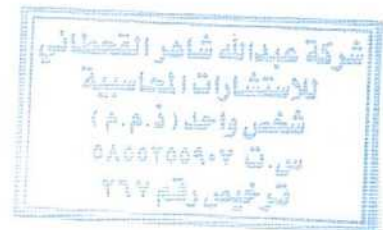 شركة عبدالله شاهر القحطاني
للاستشارات المحاسبية
شخص واحد (ذ.م.م)
س.ت ٥٨٥٥٣٥٥٩٠٧
ترخيص رقم ٢٦٧